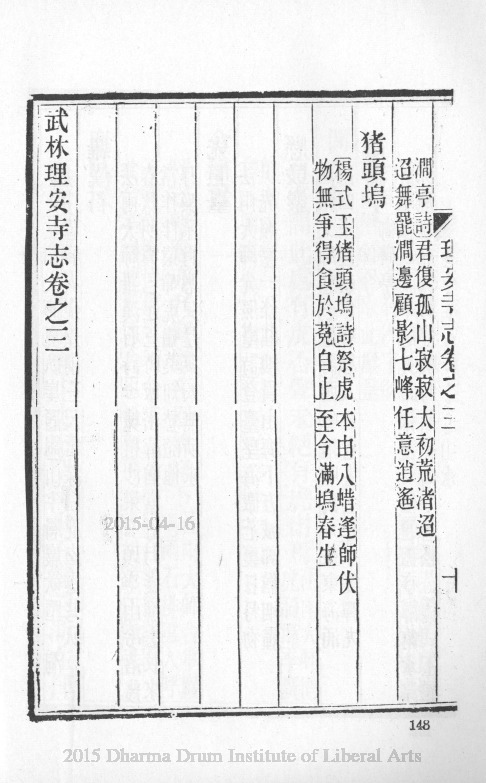 理安寺志卷之三 十
澗亭詩君復孤山寂寂太初荒渚迢
迢舞罷澗邊顧影七峰任意逍遙
猪頭塢
楊式玉猪頭塢詩祭虎本由八蜡逢師伏
物無爭得食於菟自止至今滿塢春生
武林理安寺志卷之三
2015-04-16
148
2015 Dharma Drum Institute of Liberal Arts